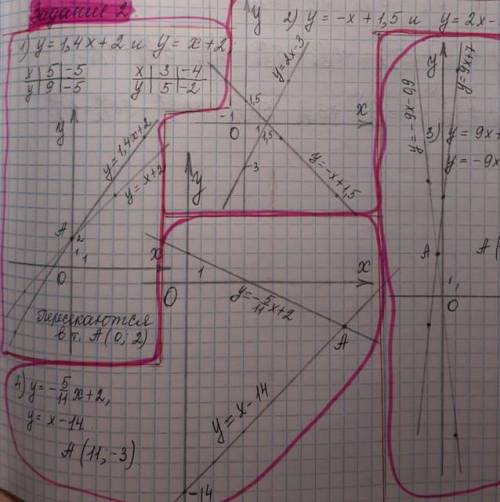 Задание 2
1) y=1,4x+2 и y=x+2
x 5 -5
y 9 -5
x 3 -4
y 5 -2
y
y=1,4x+2
y=x+2
A
2
1
1
0
x
пересекаются
в т. A(0; 2)
2) y=-x+1,5 и y=2x-
y
y=2x-3
1,5
-1
0
1
1,5
x
-3
y=-x+1,5
3) y=9x+
y=-9x
A(
y
y=-9x-0,9
y=9x+7
A
1
1
0
4) y=-5/11x+2,
y=x-14
A(11,-3)
y
0
1
x
y=-5/11x+2
A
y=x-14
-14